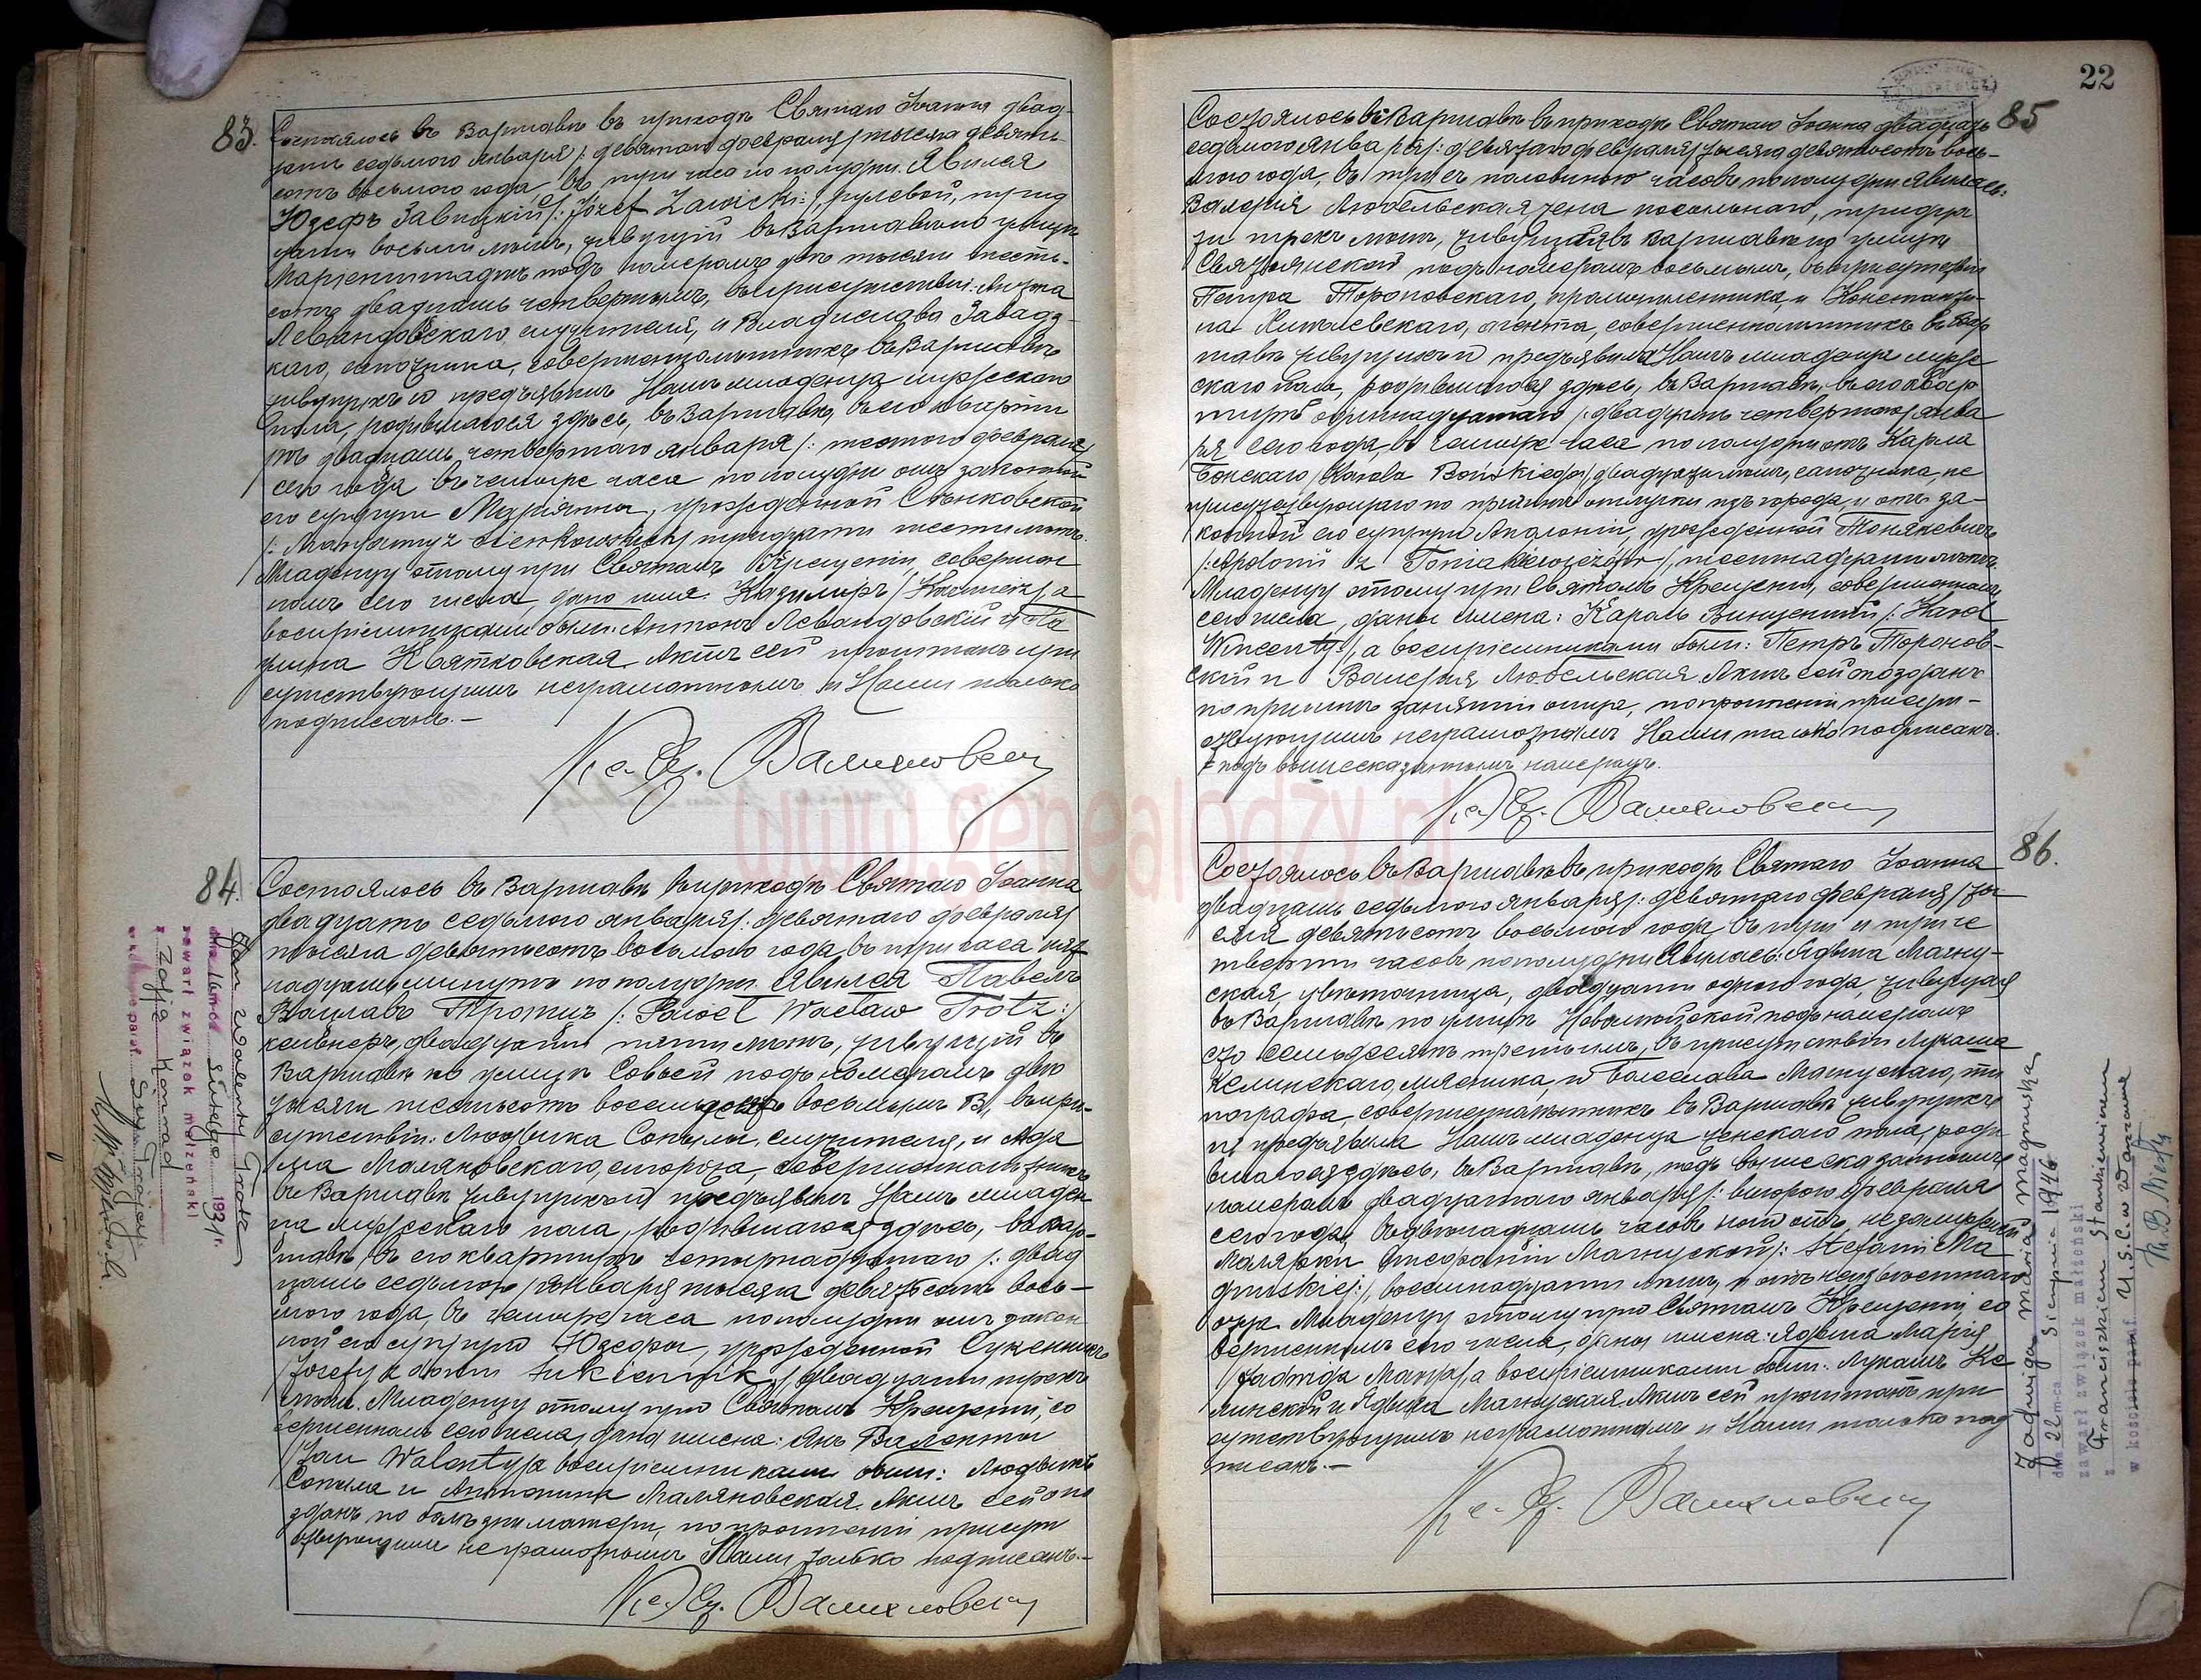 83.
Состоялось въ Варшавѣ въ приходѣ Святаго Іоанна двад-
цать седьмого января /: девятаго февраля / тысяча девять-
сотъ восьмого года въ три часа по полудни. Явился
Юзефъ Завицкій /: Józef Zawicki :/, рулевой, трид
цати восьми лѣтъ, живущій въ Варшавѣ по улицѣ
Маріенштадтъ подъ номеромъ двѣ тысячи шесть-
сотъ двадцать четвертымъ, въ присутствіи: Антона
Левандовскаго, служителя, и Владислава Завадз-
каго, сапожника, совершеннолѣтнихъ въ Варшавѣ
живущихъ и предъявилъ Намъ младенца мужескаго
пола, родившагося здѣсь, въ Варшавѣ, въ его кварти
рѣ двадцать четвертаго января /: шестого февраля /
сего года въ четыре часа по полудни отъ законной
его супруги Маріанны, урожденной Сѣнковской
/: Maryanny z Sienkowskich / тридцати шести лѣтъ.
Младенцу этому при Святомъ Крещеніи, совершен
номъ сего числа, дано имя: Казимиръ / Kazimierz /, а
воспріемниками были: Антонъ Левандовскій и
Квятковская. Актъ сей прочитанъ при
сутствующимъ неграмотнымъ и Нами только
подписанъ.-
84.
Состоялось въ Варшавѣ въ приходѣ Святаго Іоанна
двадцать седьмого января /: девятаго февраля /
тысяча девятьсотъ восьмого года въ три часа пят
надцать минутъ по полудни. Явился Павелъ
Вацлавъ Тротцъ /: Paweł Wacław Trotz :/
кельнеръ, двадцати пяти лѣтъ, живущій въ
Варшавѣ по улицѣ Совьей подъ номеромъ двѣ
тысячи шестьсотъ восемьдесятъ восьмымъ В, въ при-
сутствіи: Людвика Сопылы, служителя, и Ада
ма Маляновскаго, сторожа, совершеннолѣтнихъ
въ Варшавѣ живущихъ и предъявилъ Намъ младен
ца мужескаго пола, родившагося здѣсь, въ Вар-
шавѣ, въ его квартирѣ четырнадцатаго /: двад
цать седьмого / января тысяча девятьсотъ вось-
мого года, въ четыре часа по полудни отъ закон
ной его супруги Юзефы, урожденной Сукенникъ
/ Józefy z domu Sukiennik / двадцати трехъ
лѣтъ. Младенцу этому при Святомъ Крещеніи, со
вершенномъ сего числа, даны имена: Янъ Валенты
/ Jan Walenty /, а воспріемниками были: Людвикъ
Сопыла и Антонина Маляновская. Актъ сей опо
зданъ по болѣзни матери, по прочтеніи присут
ствующимъ неграмотнымъ Нами только подписанъ.-
Jan Walenty Trotz
dnia 16 m-ca Lutego 1931 r.
zawarł związek małżeński
z Zofją Konrad
w kościele paraf.
22
85
Состоялось въ Варшавѣ въ приходѣ Святаго Іоанна двадцать
седьмого января /: девятаго февраля / тысяча девятьсотъ вось-
мого года, въ три съ половиною часовъ по полудни. Явилась:
Валерія Любельская, жена посыльнаго, тридца
ти трехъ лѣтъ, живущая въ Варшавѣ по улицѣ
Свентоянской подъ номеромъ восьмымъ, въ присутствіи
Петра Тороновскаго, промышленника, и Константи-
на агента, совершеннолѣтнихъ въ Вар
шавѣ живущихъ и предъявила Намъ младенца муже
скаго пола, родившагося здѣсь, въ Варшавѣ, въ его квар
тирѣ одиннадцатаго /: двадцать четвертаго / янва
ря сего года, въ четыре часа по полудни отъ Карла
Бонскаго / Karola Bońskiego /, двадцати лѣтъ, сапожника, не
присутствующаго по причинѣ отлучки изъ города, и отъ за-
конной его супруги Аполоніи, урожденной Тонякевичъ
/: Apolonii z Toniakiewiczów /, шестнадцати лѣтъ.
Младенцу этому при Святомъ Крещеніи, совершенномъ
сего числа, даны имена: Кароль Винцентій /: Karol
Wincenty :/, а воспріемниками были: Петръ Торонов-
скій и Валерія Любельская. Актъ сей опозданъ
по причинѣ занятій отца, по прочтеніи присут-
ствующимъ неграмотнымъ Нами только подписанъ.
подъ вышесказаннымъ номеромъ.
86.
Состоялось въ Варшавѣ въ приходѣ Святаго Іоанна
двадцать седьмого января /: девятаго февраля / ты
сяча девятьсотъ восьмого года въ три и три че
тверти часовъ по полудни. Явилась: Ядвига Магну-
ская, цвѣточница, двадцати одного года, живущая
въ Варшавѣ по улицѣ Новолипской подъ номеромъ
сто семьдесятъ третьимъ, въ присутствіи Лукаша
Келинскаго, мясника, и Болеслава Магнускаго, ти
пографа, совершеннолѣтнихъ въ Варшавѣ живущихъ
и предъявила Намъ младенца женскаго пола, роди
вшагося здѣсь, въ Варшавѣ, подъ вышесказаннымъ
номеромъ двадцатаго января /: второго февраля /
сего года, въ двѣнадцать часовъ ночи отъ незамужней
малярки Стефаніи Магнуской /: Stefanii Ma
gnuskiej :/, восемнадцати лѣтъ, и отъ неизвѣстнаго
отца. Младенцу этому при Святомъ Крещеніи, со
вершенномъ сего числа, даны имена: Ядвига Марія
/ Jadwiga Marya /, а воспріемниками были: Лукашъ Ке
линскій и Ядвига Магнуская. Актъ сей прочитанъ при
сутствующимъ неграмотнымъ и Нами только под
писанъ.-
Jadwiga Maria Magnuska
dnia 22 m-ca Sierpnia 1946
zawarł związek małżeński
z Franciszkiem Stankiewiczem
w kościele paraf. U.S.C. w Warszawie
www.genealodzy.pl